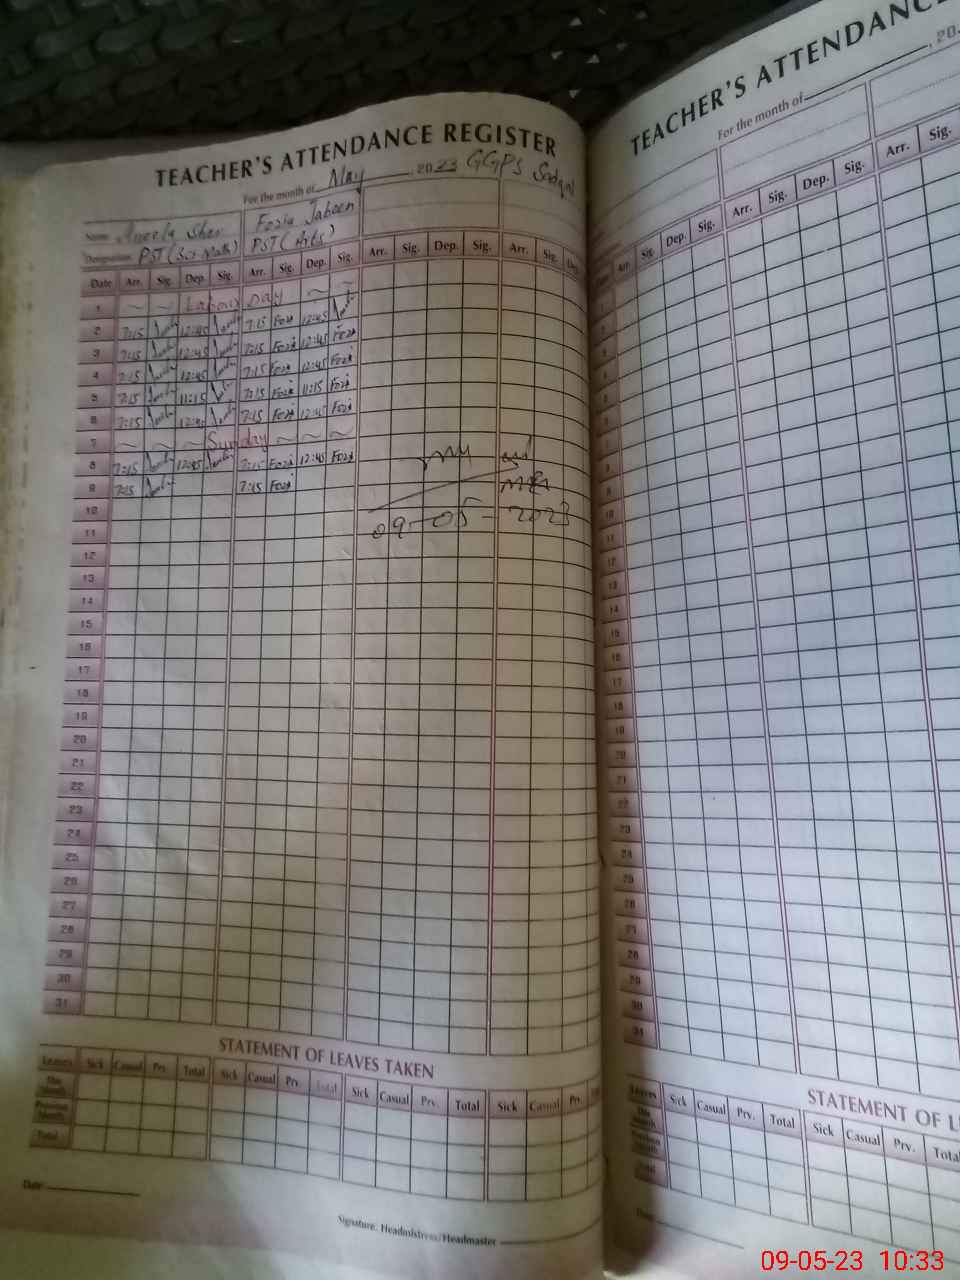 TEACHER'S ATTENDANCE REGISTER
For the month of May, 2023 GGPS
Name Aneela Sher Fozia Jabeen
Designation PST (Sci Math) PST (Arts)
Date Arr. Sig. Dep. Sig. Arr. Sig. Dep. Sig. Arr. Sig. Dep. Sig. Arr. Sig. Dep.
1 ~ ~ Labour Day ~ ~
2 7:15 12:45 7:15 Fozi 12:45
3 7:15 12:45 7:15 Fozi 12:45 Fozi
4 7:15 12:45 7:15 Fozi 12:45 Fozi
5 7:15 11:15 7:15 Fozi 11:15 Fozi
6 7:15 12:45 7:15 Fozi 12:45 Fozi
7 ~ ~ ~ Sunday ~ ~ ~
8 7:15 12:45 7:15 Fozi 12:45 Fozi
9 7:15 7:15 Fozi
10
11 09-05-2023
12
13
14
15
16
17
18
19
20
21
22
23
24
25
26
27
28
29
30
31
STATEMENT OF LEAVES TAKEN
Leaves Sick Casual Prv. Total Sick Casual Prv. Total Sick Casual Prv. Total Sick Casual Prv.
This Month
Previous Month
Total
Date
Signature. Headmistress/Headmaster
TEACHER'S ATTENDANC
For the month of , 20
Arr. Sig. Dep. Sig. Arr. Sig. Dep. Sig. Arr. Sig.
1
2
3
4
5
6
7
8
9
10
11
12
13
14
15
16
17
18
19
20
21
22
23
24
25
26
27
28
29
30
31
STATEMENT OF L
Leaves Sick Casual Prv. Total Sick Casual Prv. Total
This Month
Previous Month
Total
Date
09-05-23 10:33